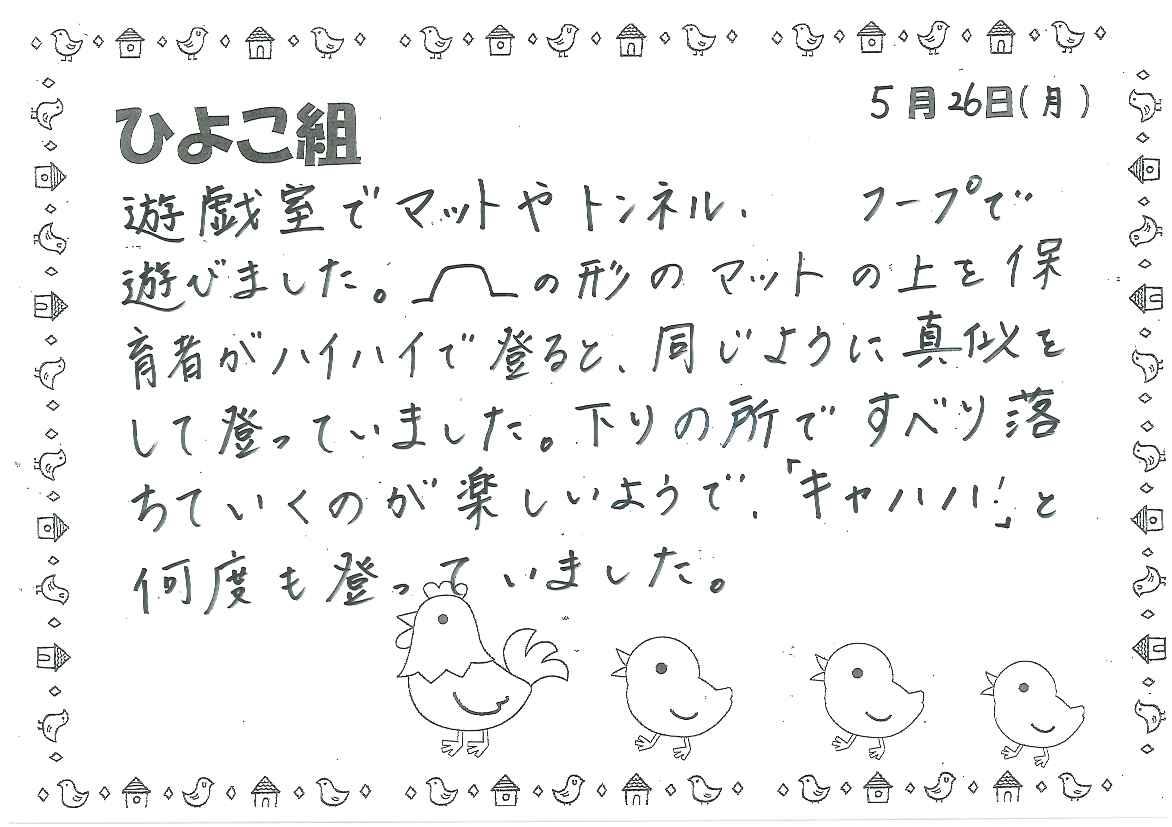 5月26日(月)
ひよこ組
遊戯室でマットやトンネル、 フープで
遊びました。の形のマットの上を保
育者がハイハイで登ると、同じように真似を
して登っていました。下りの所ですべり落
ちていくのが楽しいようで、「キャハハ!」と
何度も登っていました。